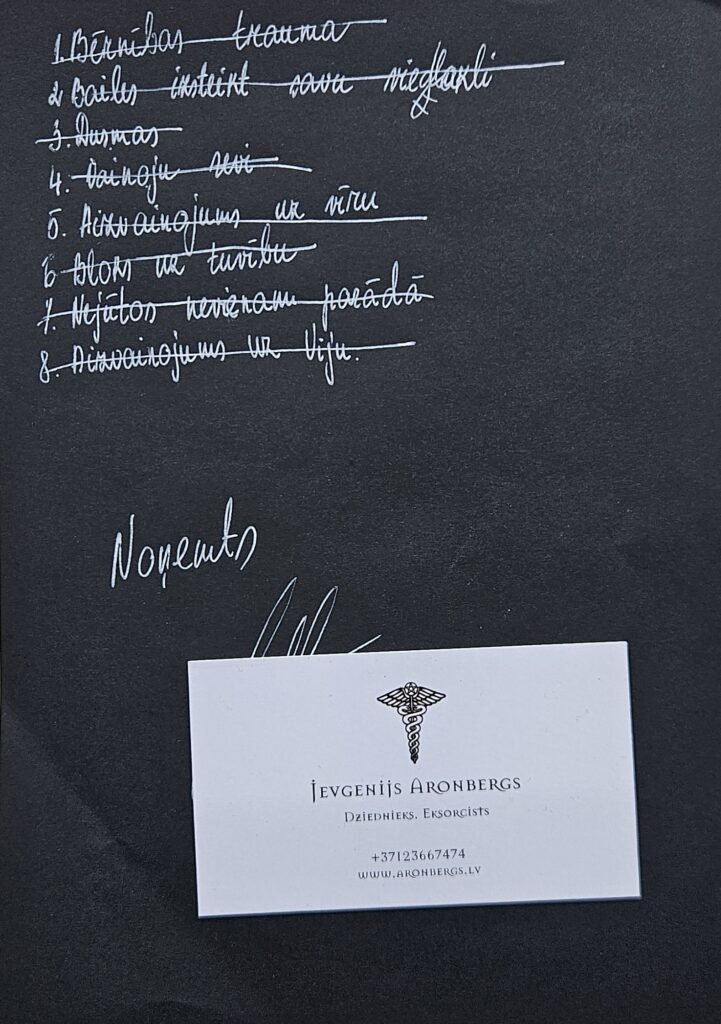 1. Bērnības trauma
2 Bailes izteikt savu viedokli
3. Dusmas
4. Vainoju sevi
5. Aizvainojums uz vīru
6 Bloks uz tuvību
7. Nejūtos nevienam parādā
8. Aizvainojums uz Viju.
Noņemts
Jevgenijs Aronbergs
Dziednieks, Eksorcists
+37123667474
www.aronbergs.lv